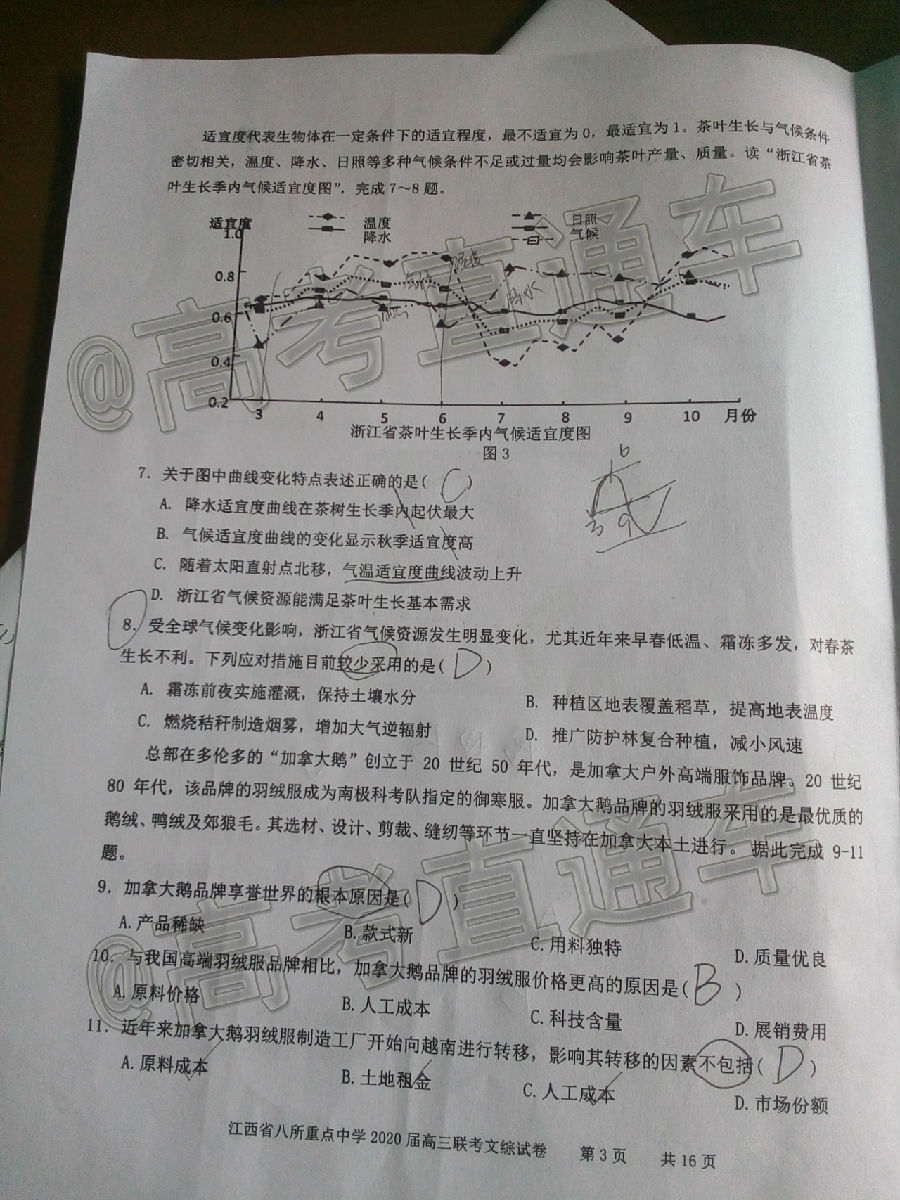 适宜度代表生物体在一定条件下的适宜程度，最不适宜为 0，最适宜为 1。茶叶生长与气候条件
密切相关，温度、降水、日照等多种气候条件不足或过量均会影响茶叶产量、质量。读“浙江省茶
叶生长季内气候适宜度图”，完成 7～8 题。
适宜度
温度
日照
降水
气候
1.0
0.8
0.6
0.4
0.2
3 4 5 6 7 8 9 10 月份
浙江省茶叶生长季内气候适宜度图
图 3
7．关于图中曲线变化特点表述正确的是( C )
A. 降水适宜度曲线在茶树生长季内起伏最大
B. 气候适宜度曲线的变化显示秋季适宜度高
C. 随着太阳直射点北移，气温适宜度曲线波动上升
D. 浙江省气候资源能满足茶叶生长基本需求
8．受全球气候变化影响，浙江省气候资源发生明显变化，尤其近年来早春低温、霜冻多发，对春茶
生长不利。下列应对措施目前较少采用的是( D )
A. 霜冻前夜实施灌溉，保持土壤水分
B. 种植区地表覆盖稻草，提高地表温度
C. 燃烧秸秆制造烟雾，增加大气逆辐射
D. 推广防护林复合种植，减小风速
总部在多伦多的“加拿大鹅”创立于 20 世纪 50 年代，是加拿大户外高端服饰品牌。20 世纪
80 年代，该品牌的羽绒服成为南极科考队指定的御寒服。加拿大鹅品牌的羽绒服采用的是最优质的
鹅绒、鸭绒及郊狼毛。其选材、设计、剪裁、缝纫等环节一直坚持在加拿大本土进行。据此完成 9-11
题。
9．加拿大鹅品牌享誉世界的根本原因是( D )
A.产品稀缺 B.款式新 C.用料独特 D.质量优良
10．与我国高端羽绒服品牌相比，加拿大鹅品牌的羽绒服价格更高的原因是( B )
A.原料价格 B.人工成本 C.科技含量 D.展销费用
11．近年来加拿大鹅羽绒服制造工厂开始向越南进行转移，影响其转移的因素不包括( D )
A.原料成本 B.土地租金 C.人工成本 D.市场份额
江西省八所重点中学 2020 届高三联考文综试卷 第 3 页 共 16 页
@高考直通车
@高考直通车